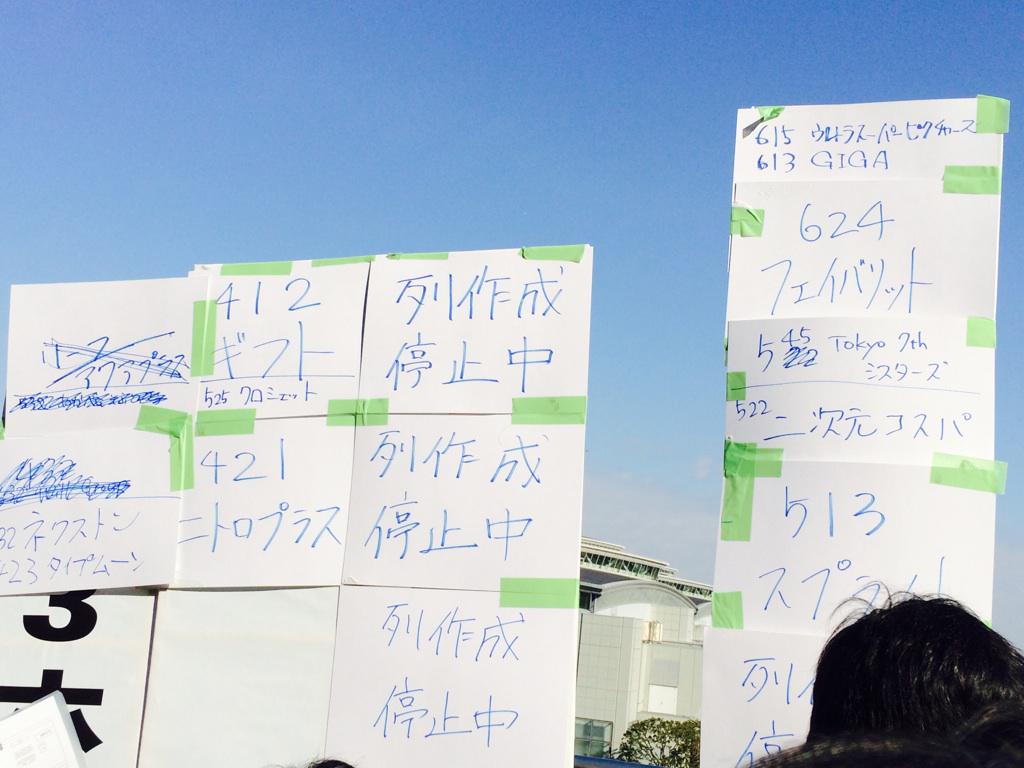 412
ギフト
525 クロシェット
421
ニトロプラス
ネクストン
423 タイプムーン
3
列作成
停止中
列作成
停止中
列作成
停止中
615 ウルトラスーパーピクチャーズ
613 GIGA
624
フェイバリット
545 Tokyo 7th
シスターズ
522
二次元コスパ
513
スプライト
列
停